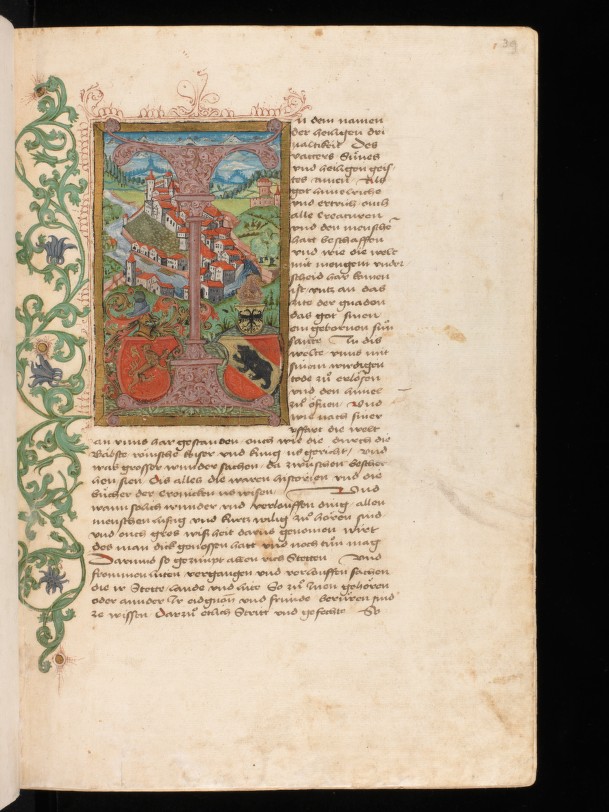 39
n dem namen
der heiligen dri
ualtikeit Des
vatters Sunes
vnd heiligen geis
tes amen Als
got himelriche
vnd ertrich ouch
alle Creaturen
vnd den mensche
hatt beschaffen
vnd wie die welt
mit mengem vnder
scheid har komen
ist vntz an das
zite der gnaden
das got sinen
ein gebornen sun
sante In dis
welte vnns mit
sinem wirdigen
tode zů erlösen
vnd den himel
zů öfnen Vnd
wie nach siner
vffart die welt
an vnns har gestanden ouch wie die durch die
Bäbste römische keiser vnd kung us gericht vnd
was grosser wunder sachen da zwüschen beschec
hen sien Dis alles die waren historien vnd die
bůcher der Cronicken us wisen Vnd
wann solich wunder vnd verlouffen ding allen
menschen lustig vnd kurtz wilig zů hören sind
vnd ouch gros wisheit darus genomen wirt
des man dick genossen hatt vnd noch tůn mag
Darumb so gezimpt allen rich Stetten Vnd
frommen lüten vergangen vnd verlouffen sachen
die ir Stette lande vnd lüte So zů Inen gehören
oder annder Ir eidgnon vnd fründe berůren sind
ze wissen Darzů etlich Stritt vnd gefechte So